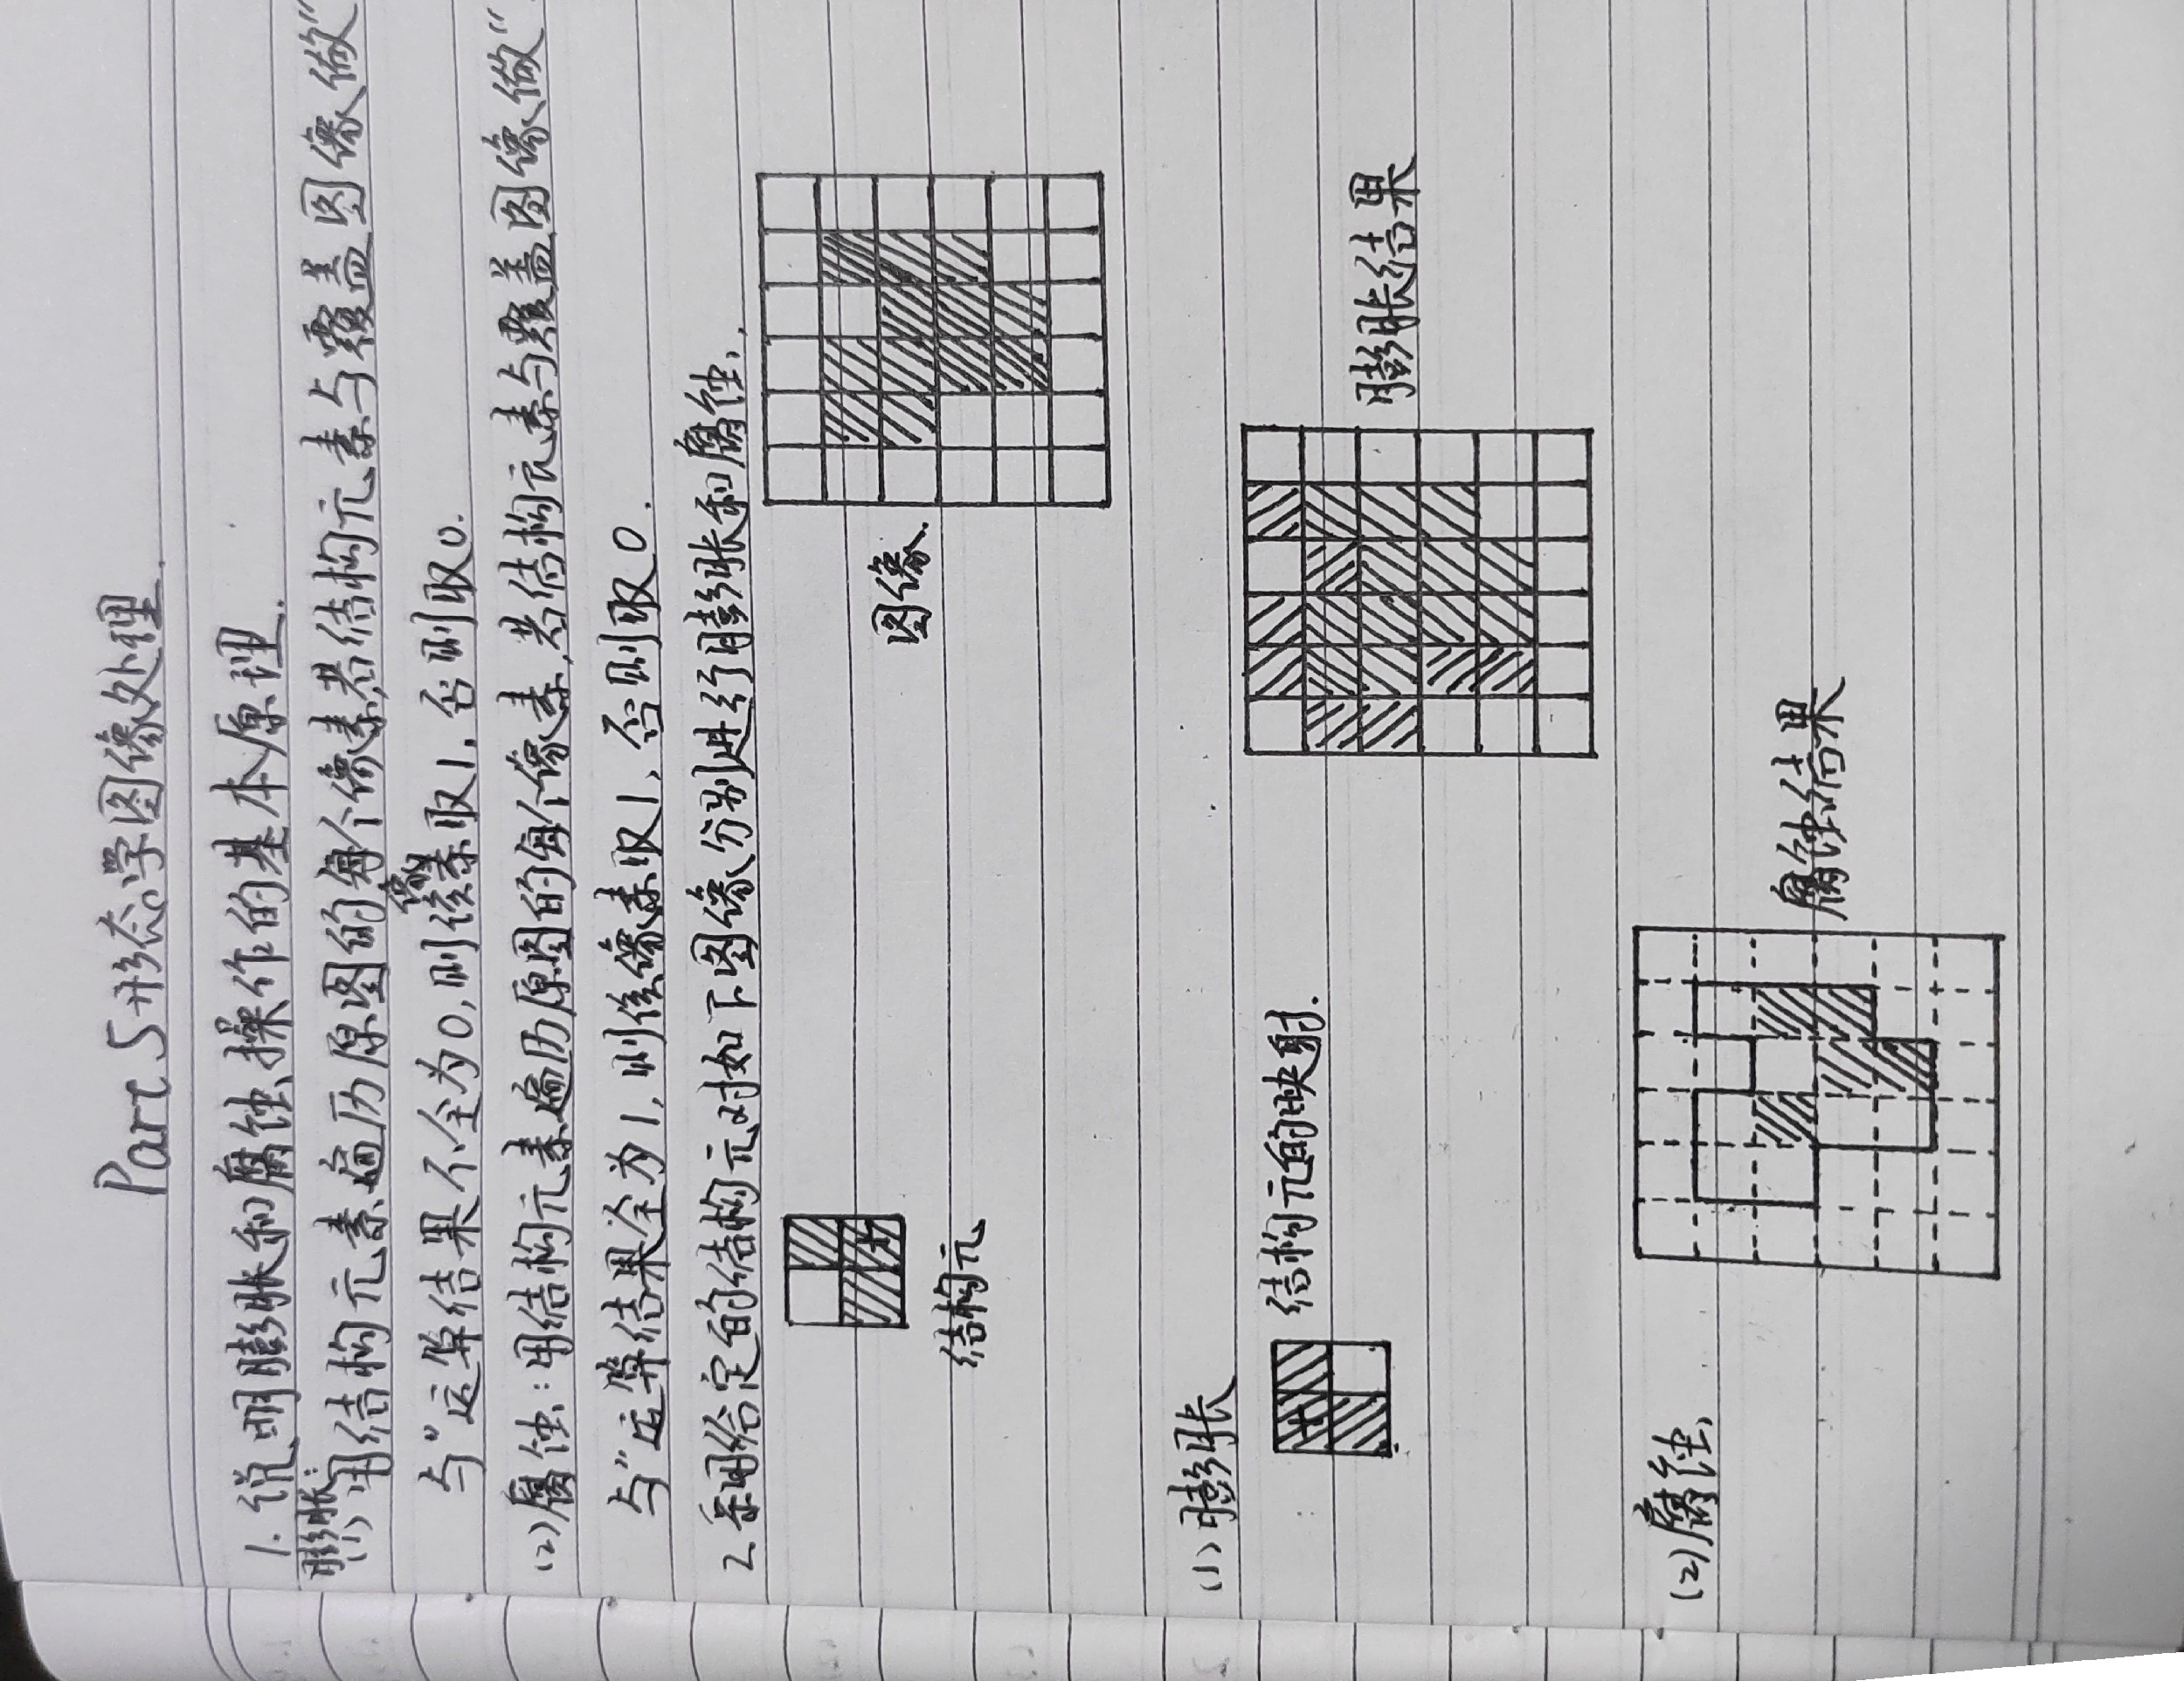 Part 5 形态学图像处理.
1. 说明膨胀和腐蚀操作的基本原理.
膨胀:
(1) 用结构元素遍历原图的每个像素,若结构元素与覆盖图像做“
与”运算结果不全为0,则该像素取1,否则取0.
(2)腐蚀:用结构元素遍历原图的每个像素,若结构元素与覆盖图像做“
与”运算结果全为1,则该像素取1,否则取0.
2.采用给定的结构元对如下图像分别进行膨胀和腐蚀.
图像.
结构元
(1)膨胀
结构元的映射.
膨胀结果
(2)腐蚀
腐蚀结果